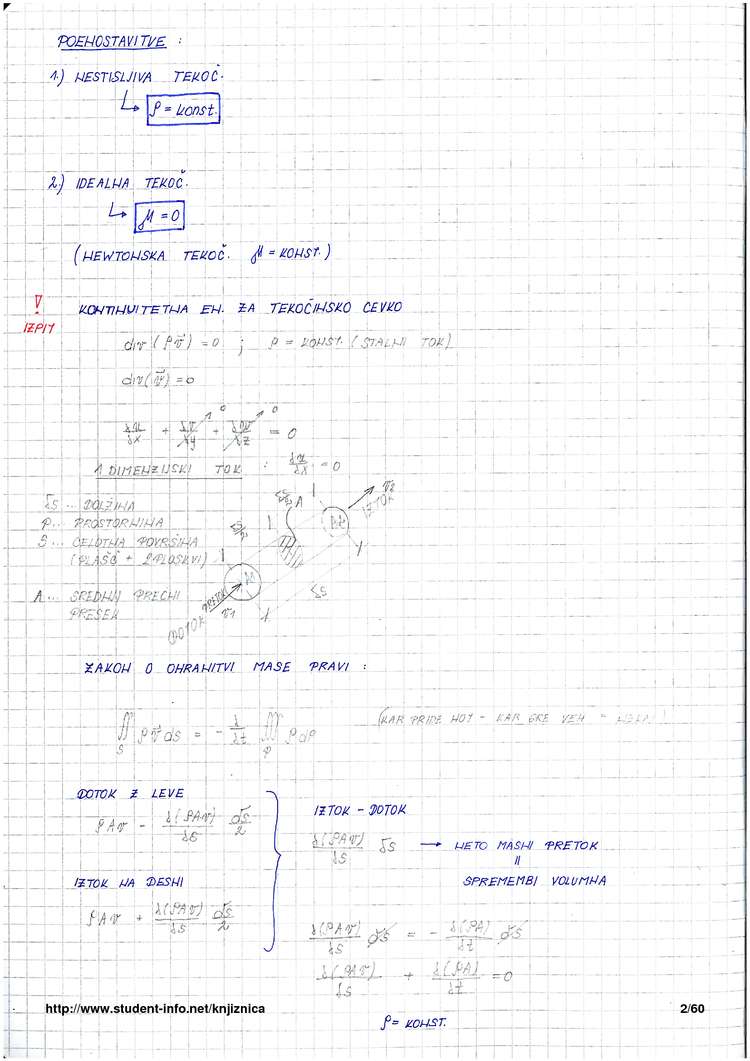 POENOSTAVITVE :
1.) NESTISLJIVA TEKOČ.
ρ = konst.
2.) IDEALNA TEKOČ.
μ = 0
(NEWTONSKA TEKOČ. μ = KONST.)
!
IZPIT
KONTINUITETNA EN. ZA TEKOČINSKO CEVKO
div (ρv⃗) = 0 ; ρ = KONST. (STALNI TOK)
div (v⃗) = 0
∂u/∂x + ∂v/∂y → 0 + ∂w/∂z → 0 = 0
1 DIMENZIJSKI TOK : ∂u/∂x = 0
δs ... DOLŽINA
P ... PROSTORNINA
S ... CELOTNA POVRŠINA
(PLAŠČ + 2 PLOSKVI)
A ... SREDNJI PREČNI
PRESEK
δs/2
δs/2
A
A1
A2
v2
IZTOK
δs
PRETOK
v1
DOTOK
ZAKON O OHRANITVI MASE PRAVI :
∬S ρv⃗ ds = - ∂/∂t ∭P ρ dP
(KAR PRIDE NOT - KAR GRE VEN =
DOTOK Z LEVE
ρAv - ∂(ρAv)/∂s δs/2
IZTOK NA DESNI
ρAv + ∂(ρAv)/∂s δs/2
IZTOK - DOTOK
∂(ρAv)/∂s δs → NETO MASNI PRETOK
=
SPREMEMBI VOLUMNA
∂(ρAv)/∂s δs = - ∂(ρA)/∂t δs
∂(ρAv)/∂s + ∂(ρA)/∂t = 0
ρ = KONST.
http://www.student-info.net/knjiznica
2/60